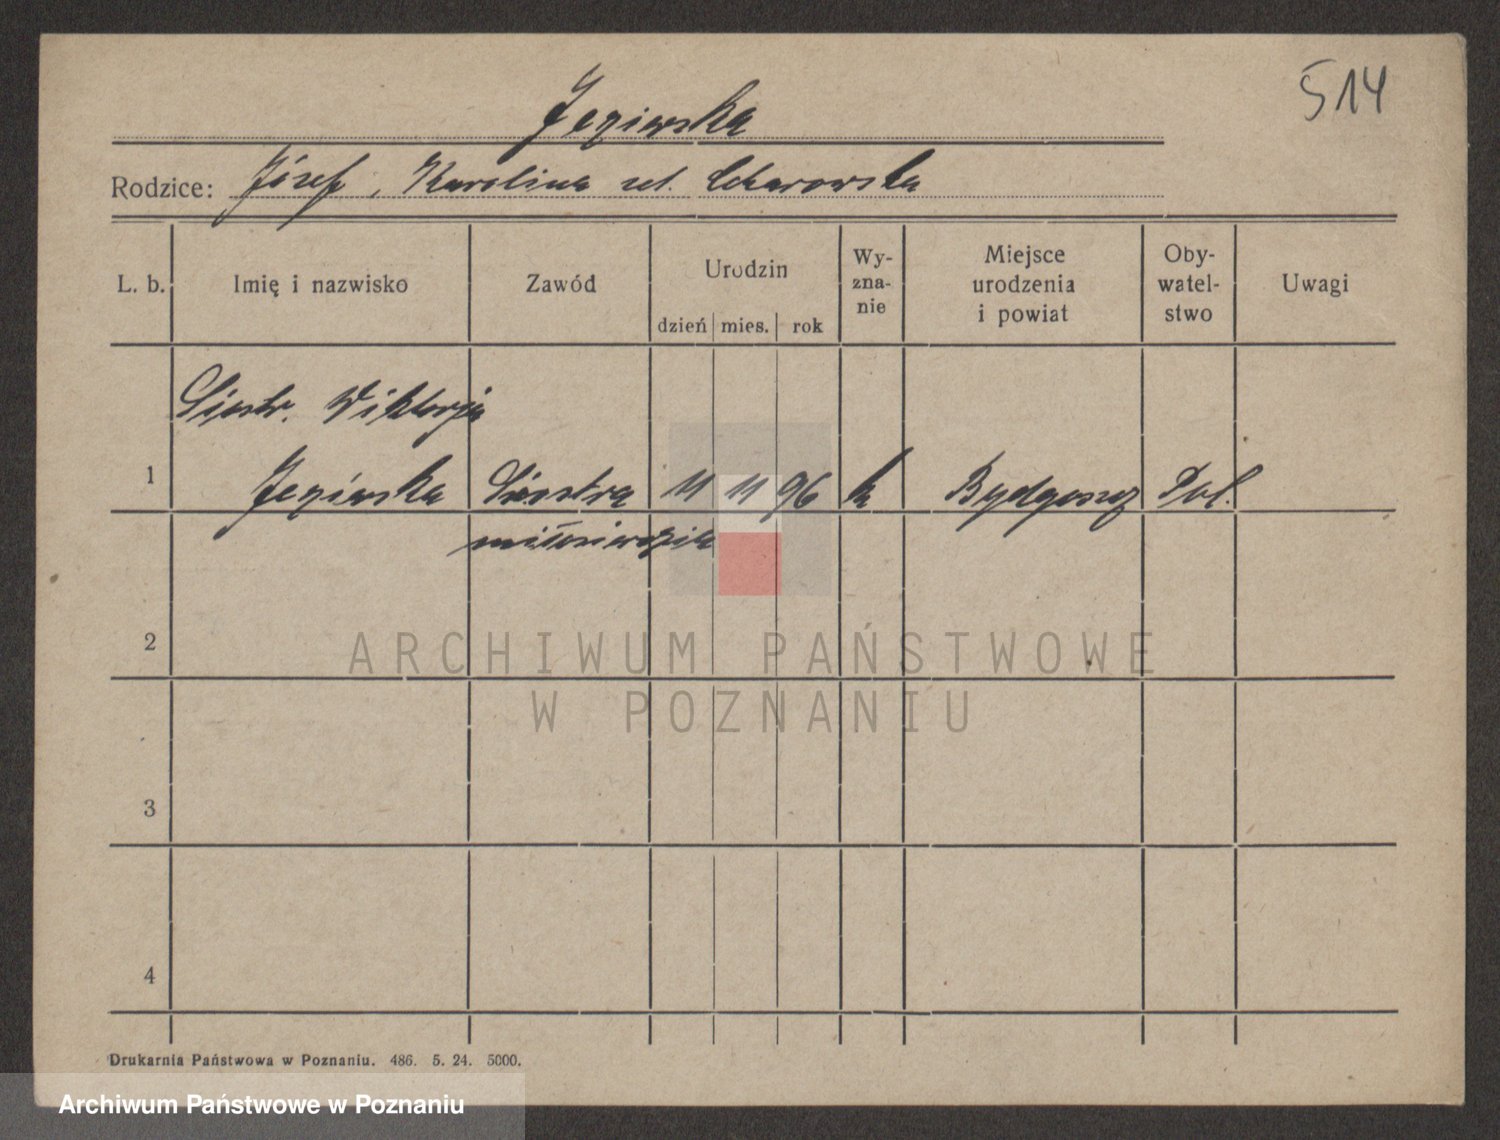 514
Jeziewska
Rodzice: Józef, Karolina
L. b. Imię i nazwisko Zawód Urodzin dzień mies. rok Wy-zna-nie Miejsce urodzenia i powiat Oby-watel-stwo Uwagi
Siostr. Wiktorja
1 Jeziewska Siostra 11 11 96 k Bydgoszcz Pol.
miłosierdzia
2
ARCHIWUM PAŃSTWOWE
W POZNANIU
3
4
Drukarnia Państwowa w Poznaniu. 486. 5. 24. 5000.
Archiwum Państwowe w Poznaniu